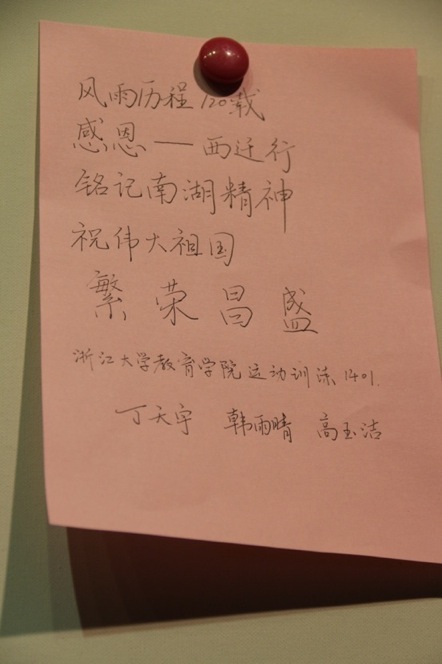 风雨历程120载
感恩——西迁行
铭记南湖精神
祝伟大祖国
繁荣昌盛
浙江大学教育学院运动训练1401.
丁天宇 韩雨晴 高玉洁